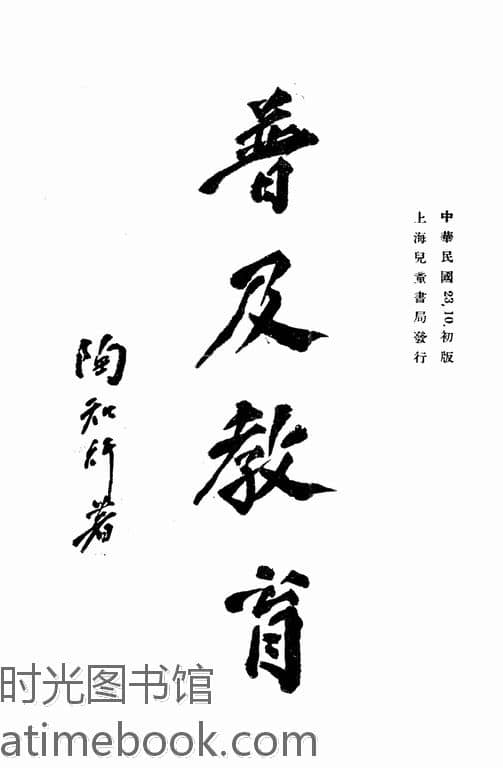 中華民國23,10.初版
上海兒童書局發行
普及教育
陶知行著
时光图书馆
atimebook.com